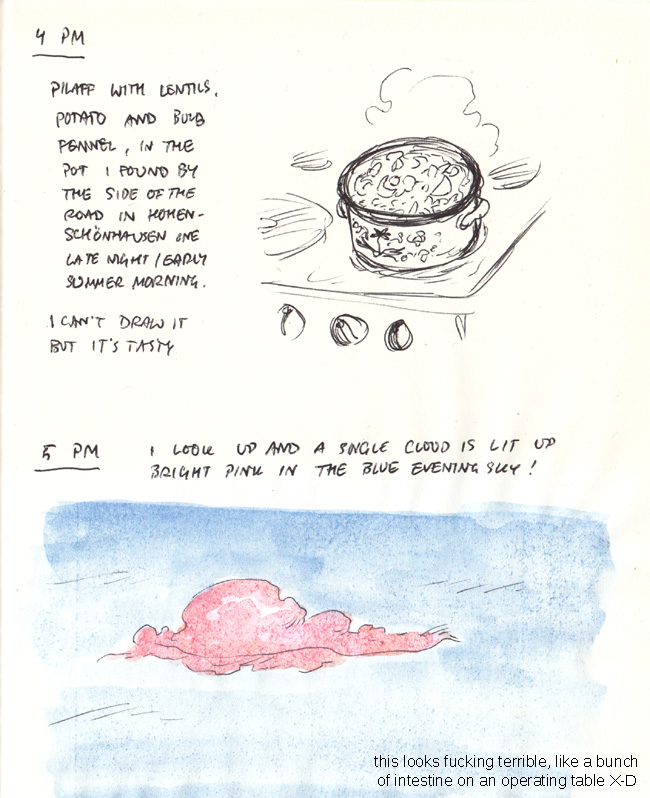 4 PM
PILAFF WITH LENTILS,
POTATO AND BULB
FENNEL, IN THE
POT I FOUND BY
THE SIDE OF THE
ROAD IN HOHEN-
SCHÖNHAUSEN ONE
LATE NIGHT/EARLY
SUMMER MORNING.
I CAN'T DRAW IT
BUT IT'S TASTY
5 PM
I LOOK UP AND A SINGLE CLOUD IS LIT UP
BRIGHT PINK IN THE BLUE EVENING SKY!
this looks fucking terrible, like a bunch
of intestine on an operating table X-D